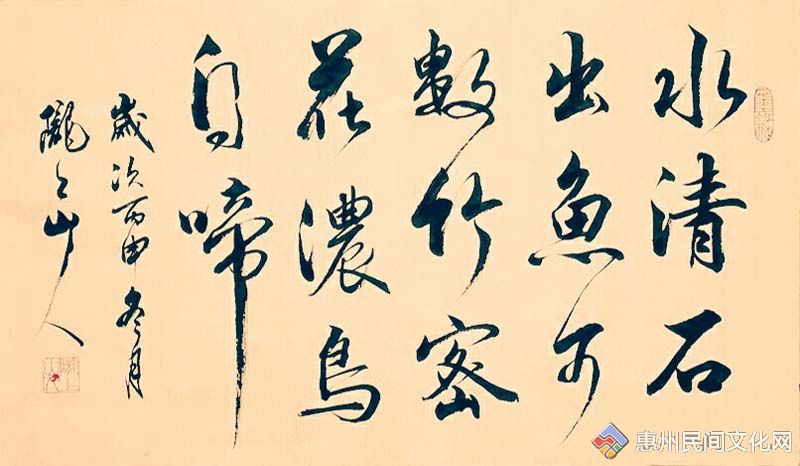 水清石
出魚可
數竹密
花濃鳥
自啼
歲次丙申冬月
隴上山人
惠州民间文化网